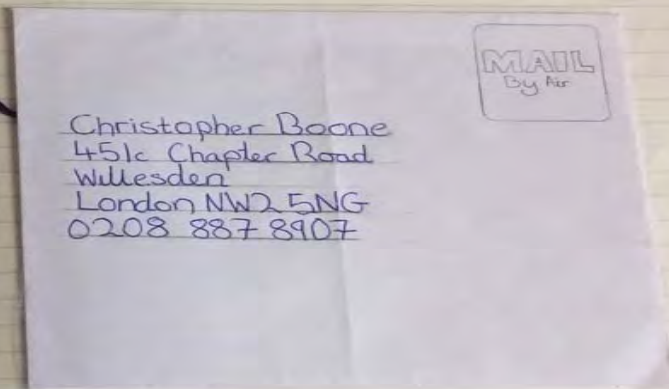 MAIL
By Air
Christopher Boone
451c Chapter Road
Willesden
London NW2 5NG
0208 887 8907